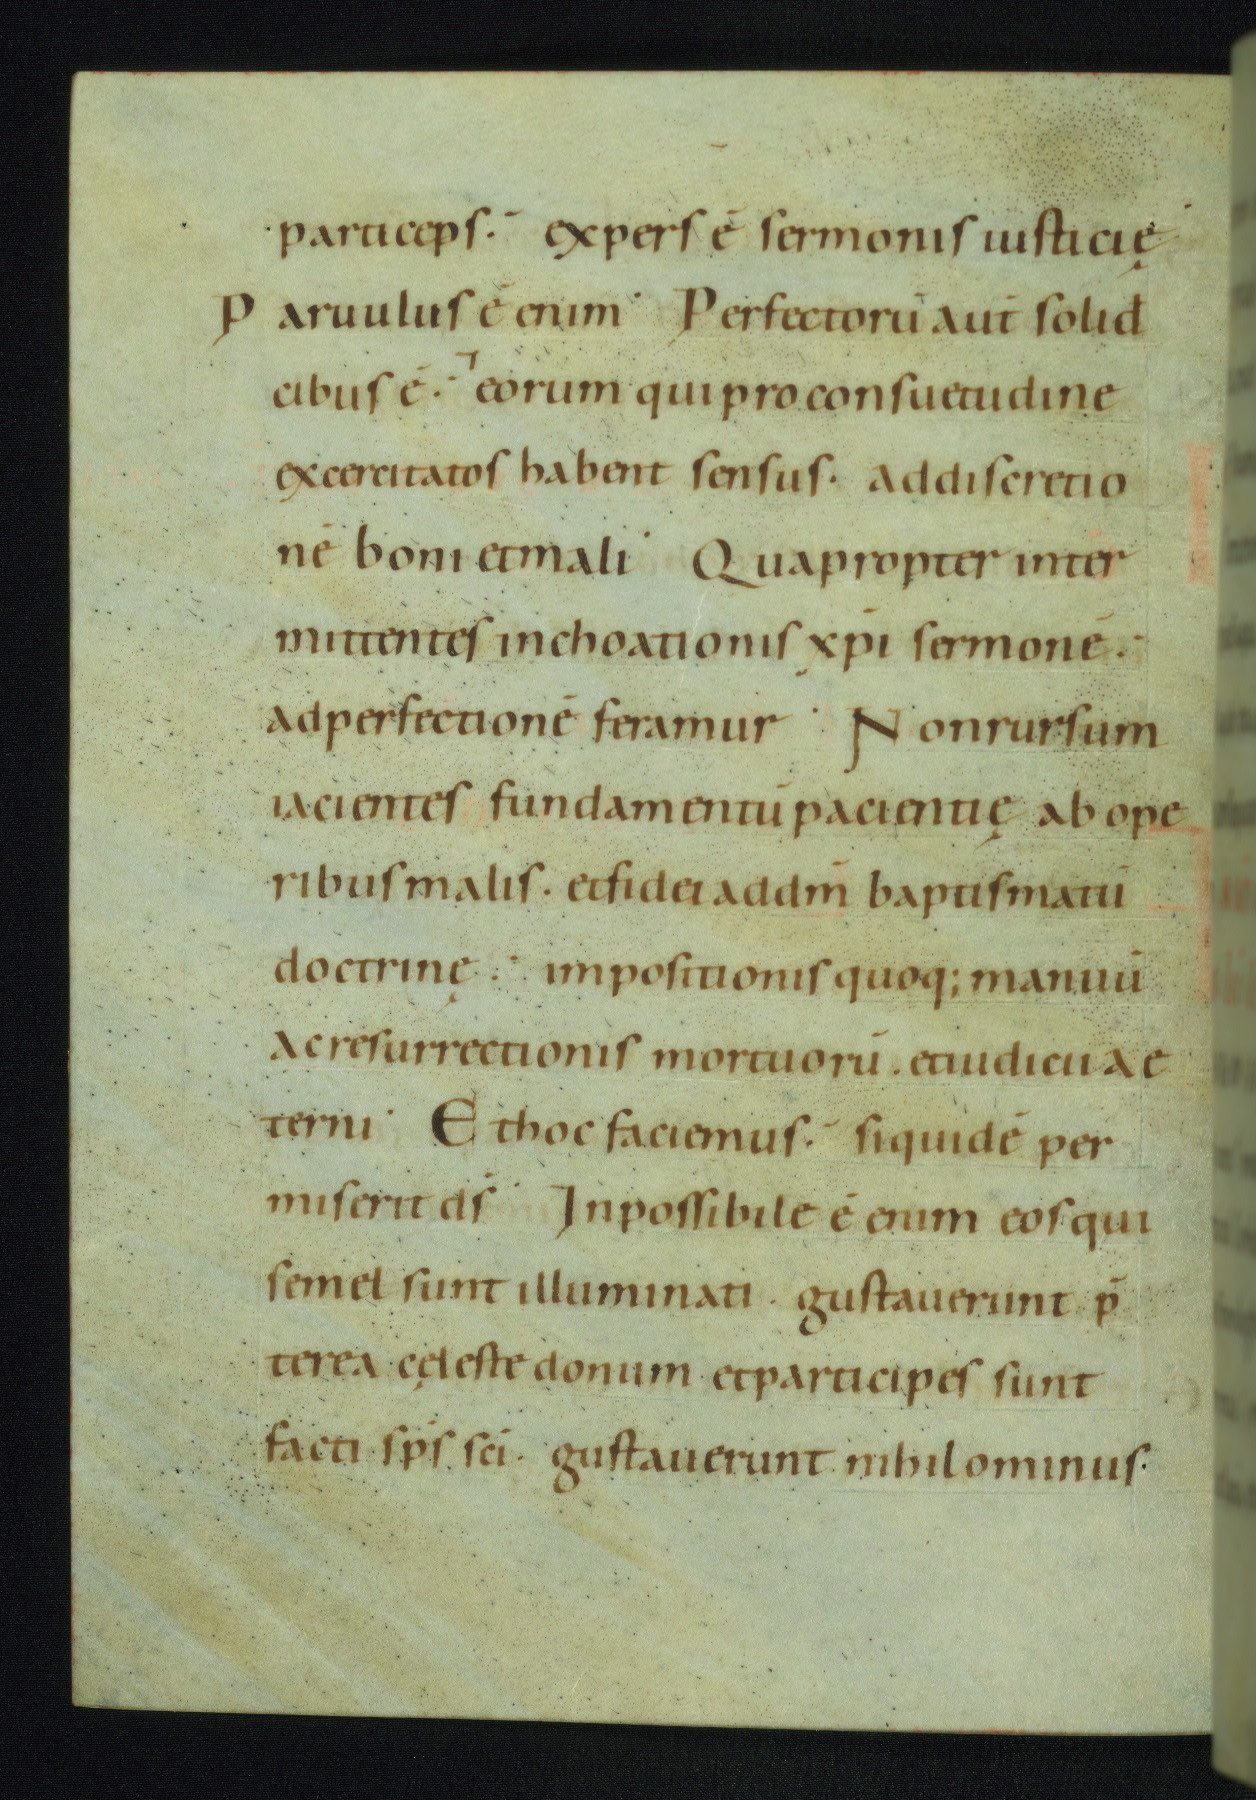 particeps. expers ē sermonis iusticię
Paruulus ē enim. Perfectorū aut̄ solid
cibus ē. eorum qui pro consuetudine
excercitatos habent sensus. addiscretio
nē boni etmali. Quapropter inter
mittentes inchoationis xp̄i sermonē.
adperfectionē feramur. Nonrursum
iacientes fundamentū pacientię ab ope
ribus malis. etfidei addm̄ baptismatū
doctrinę. impositionis quoq; manuū
ac resurrectionis mortuorū. etiudicii ae
terni. Et hoc faciemus. siquidē per
miserit ds̄. Inpossibile ē enim eos qui
semel sunt illuminati. gustauerunt p̄
terea cęleste donum etparticipes sunt
facti sp̄s sc̄i. gustauerunt nihilominus.